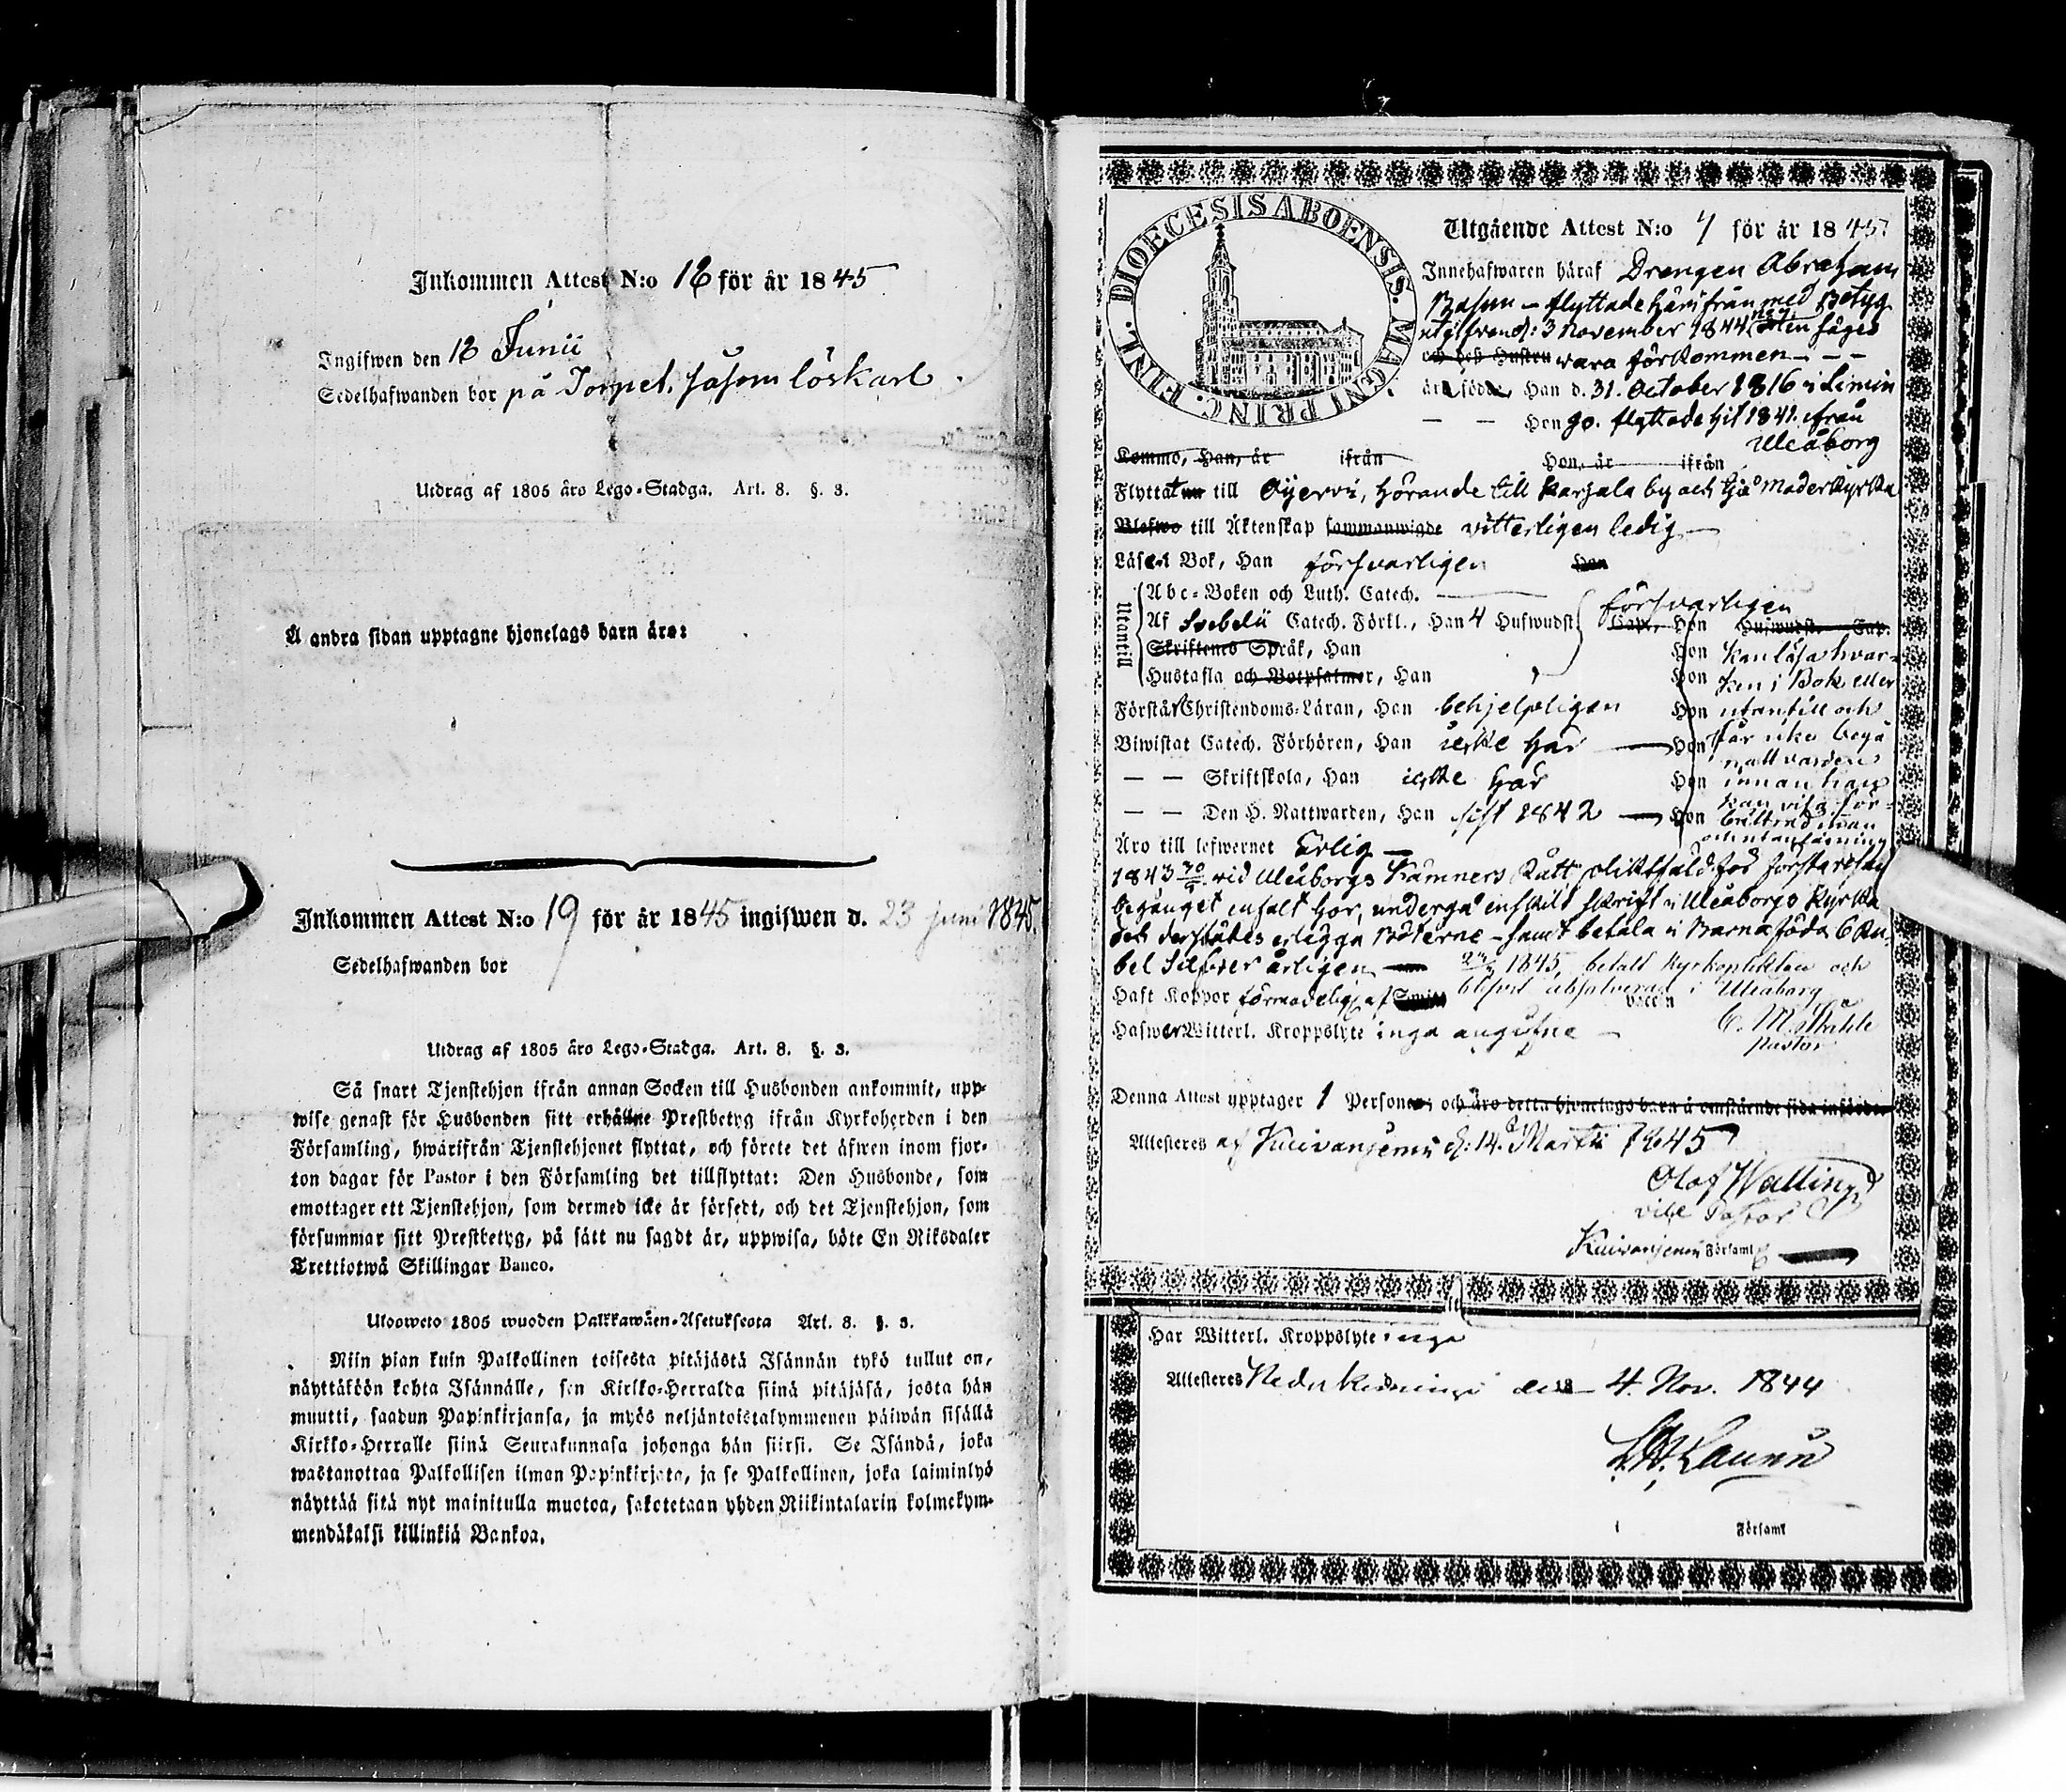 Inkommen Attest N:o 18 för år 1845
Ingifwen den 18 Junii
Sedelhafwanden bor på Torpet, såsom löskarl
Utdrag af 1805 års Lego-Stadga. Art. 8. §. 3.
Å andra sidan upptagne hjonelags barn äro:
Inkommen Attest N:o 19 för år 1845 ingifwen d. 23 juni 1845.
Sedelhafwanden bor
Utdrag af 1805 års Lego-Stadga. Art. 8. §. 3.
Så snart Tjenstehjon ifrån annan Socken till Husbonden ankommit, upp-
wise genast för Husbonden sitt erhållne Prestbetyg ifrån Kyrkoherden i den
Församling, hwarifrån Tjenstehjonet flyttat, och förete det äfwen inom fjor-
ton dagar för Pastor i den Församling det tillflyttat: Den Husbonde, som
emottager ett Tjenstehjon, som dermed icke är försedt, och det Tjenstehjon, som
försummar sitt Prestbetyg, på sätt nu sagdt är, uppwisa, böte En Riksdaler
Trettiotwå Skillingar Banco.
Ulosweto 1805 wuoden Palkkawäen-Asetuksesta Art. 8. §. 3.
Niin pian kuin Palkollinen toisesta pitäjästä Isännän tykö tullut on,
näyttäköön kohta Isännälle, sen Kirkko-Herralda siinä pitäjäsä, josta hän
muutti, saadun Papinkirjansa, ja myös neljäntoistakymmenen päiwän sisällä
Kirkko-Herralle siinä Seurakunnasa johonga hän siirsi. Se Isändä, joka
wastanottaa Palkollisen ilman Papinkirjata, ja se Palkollinen, joka laiminlyö
näyttää sitä nyt mainitulla muotoa, sakotetaan yhden Riikintalarin kolmekym-
mendäkaksi killinkiä Bankoa.
DIOECESIS ABOENSIS. MAGNI PRINC. FINL.
Utgående Attest N:o 7 för år 1845
Innehafwaren häraf Drengen Abraham
flyttade härifrån med Betyg
utgifven d: 3 November 1844 men säges
och dess Hustru vara förkommen
äro födde, Han d. 31. October 1816 i Limin
Hon go. flyttade hit 1841. ifrån
Uleåborg
Kommo, Han, år ifrån Hon, år ifrån
Flyttat till Öijervi, hörande till Karjala by och Ijo Moderkyrka
Blefwo till Äktenskap sammanwigde vitterligen ledig
Läser i Bok, Han försvarligen Hon
Utantill
Abc-Boken och Luth. Catech.
Af Svebelii Catech. Förkl., Han 4 Hufwudst. försvarligen Cap., Hon Hufwudst. Cap.
Skriftenes Språk, Han Hon kan läsa hvar-
Hustafla och Botpsalmer, Han Hon ken i Bok eller
Förstår Christendoms-Läran, Han behjelpligen Hon utantill och
Biwistat Catech. Förhören, Han icke här Hon får icke begå
nattvarden
Skriftskola, Han icke här Hon innan han
Den H. Nattwarden, Han sist 1842 Hon
Äro till lefwernet Ärlig
1843 30/5 vid Uleåborgs Kämners Rätt pliktfäld för första resan
begånget enfalt hor, undergå enskilt skrift i Uleåborgs Kyrka
och derstädes erlägga Böterne - samt betala i Barnaföda 6 Ru-
bel Silfver årligen 1845, betalt kyrkoplikten och
blifvit absolverad i Uleåborg
Haft Koppor förmodeligen af Smitt Vaccin
Hafwer Witterl. Kroppslyte inga angifne
Pastor
Denna Attest upptager 1 Personer; och äro detta hjonelags barn å omstående sida införde
Attesteres af Kuivaniemi d: 14. Martii 1845
Olof Wallin
vice Pastor
Kuivaniemi Församl
Har Witterl. Kroppslyte inga
Attesteres Neder den 4. Nov. 1844
i Församl